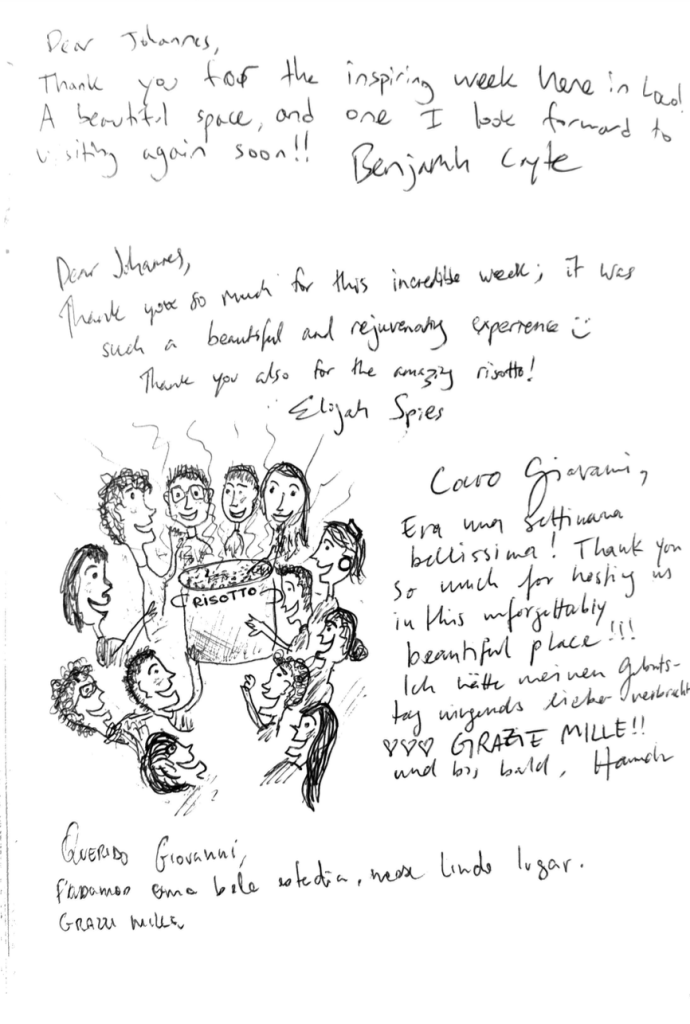 Dear Johannes,
Thank you for the inspiring week here in
A beautiful space, and one I look forward to
visiting again soon!! Benjamin
Dear Johannes,
Thank you so much for this incredible week; it was
such a beautiful and rejuvenating experience
Thank you also for the amazing risotto!
Elijah Spies
RISOTTO
Caro Giovanni,
Era una settimana
bellissima! Thank you
so much for hosting us
in this unforgettably
beautiful place!!!
Ich hätte meinen Geburts-
tag nirgends lieber verbracht
♡♡♡ GRAZIE MILLE!!
und bis bald, Hannah
QUERIDO GIOVANNI,
uma bela estadia, nesse lindo lugar.